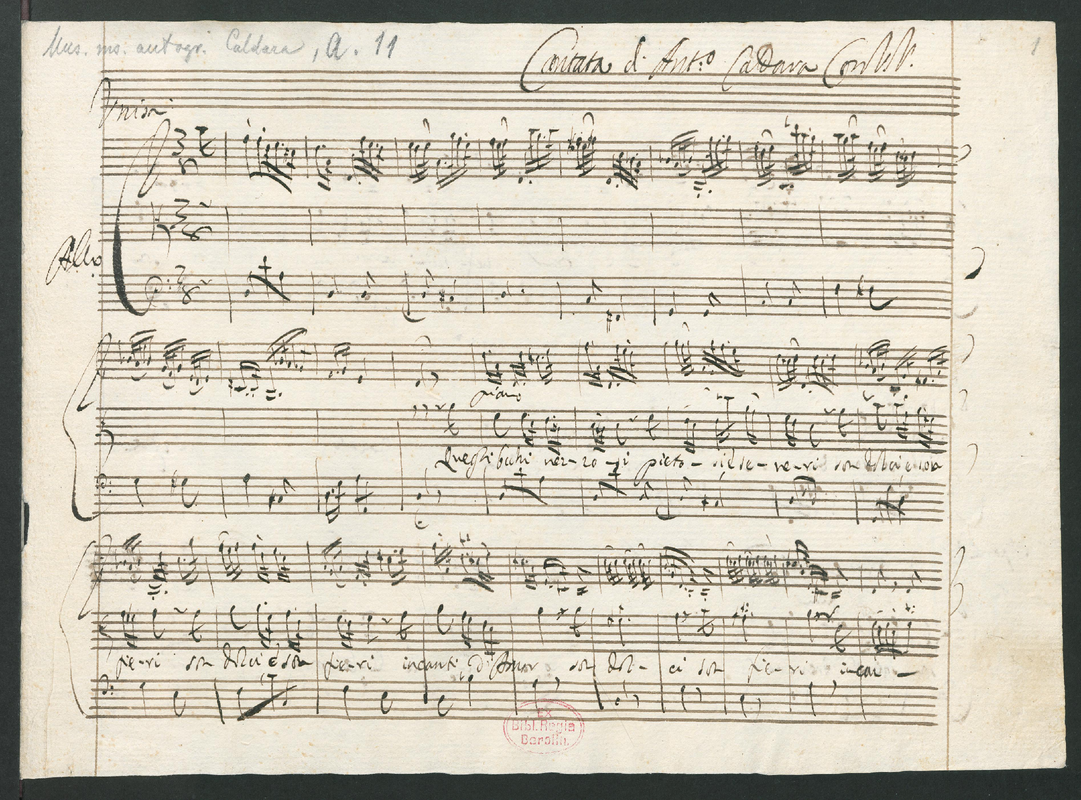 Mus. ms. autogr. Caldara, A. 11
Cantata di Ant:o Caldara Con VV.
1
Unisi
All:o
piano
Quegli occhi vez-zo-si pieto-si e se-ve-ri son dolci e son
fie-ri son dolci e son fie-ri incanti d'Amor son dol-ci son fie-ri incan-
Ex
Bibl. Regia
Berolin.